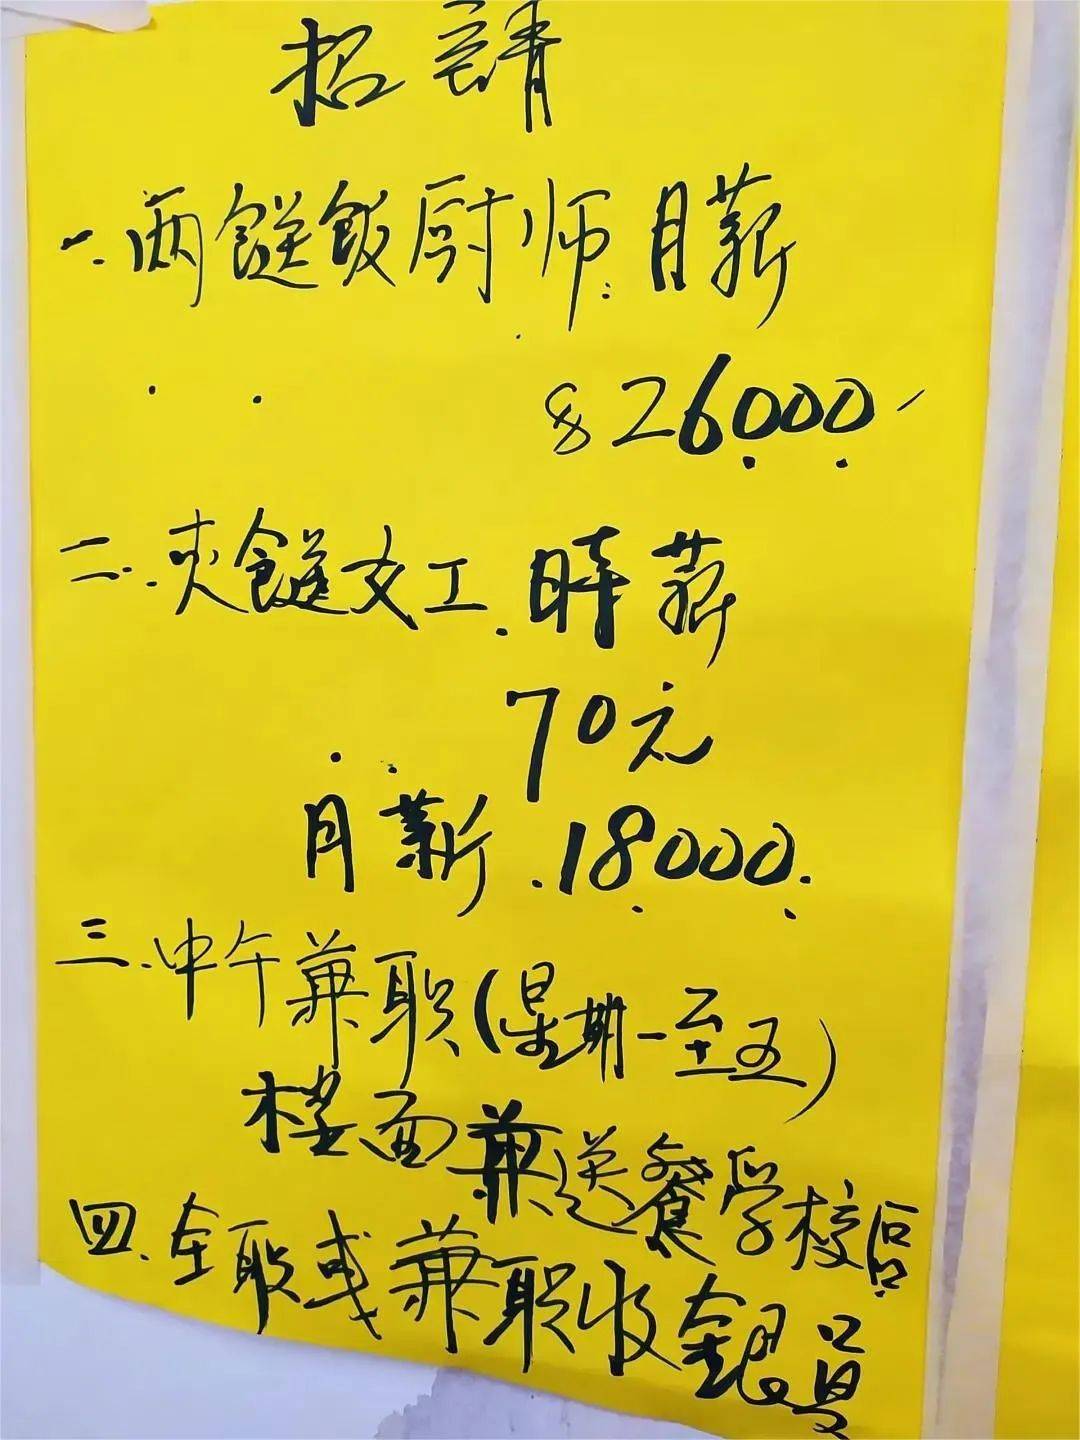 招請
一.两餸飯厨师:月薪
$26000
二.夹餸女工.時薪
70元
月薪.18000.
三.中午兼职(星期一至五)
楼面兼送餐学校店
四.全职或兼职收銀員